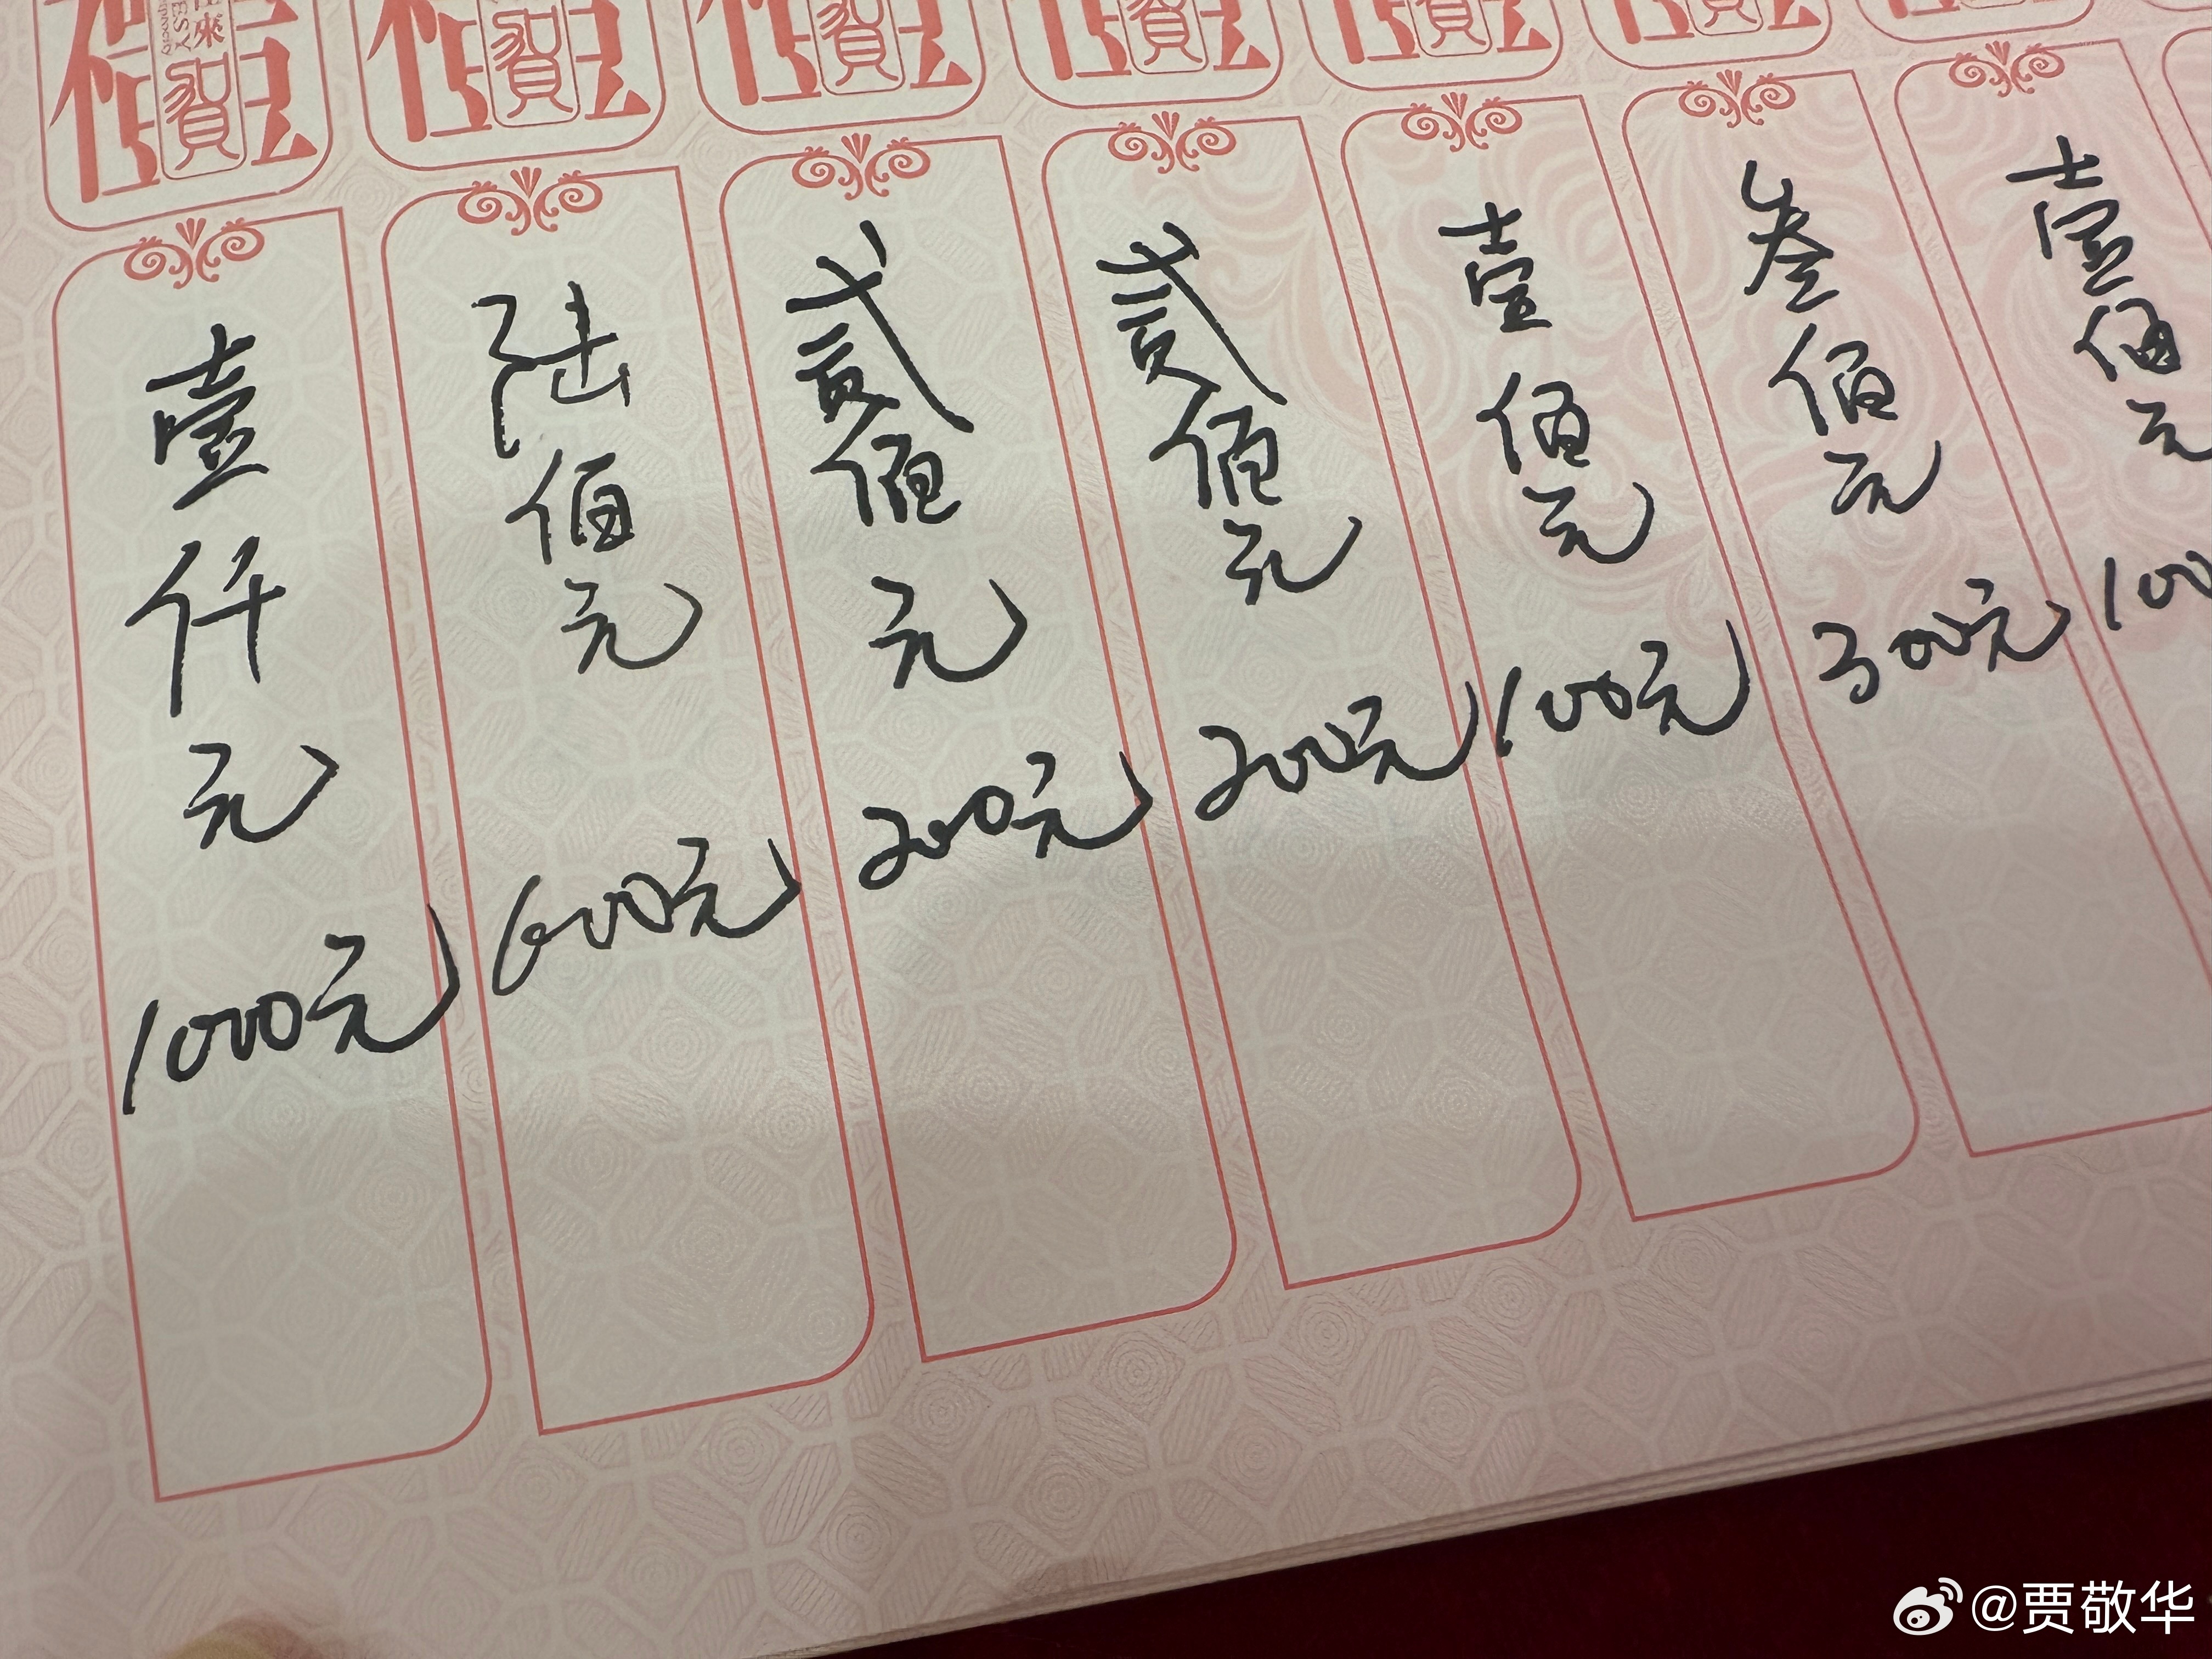 賀 賀 賀 賀 賀 賀
壹仟元
1000元
陆佰元
600元
贰佰元
200元
贰佰元
200元
壹佰元
100元
叁佰元
300元
壹佰元
100
@贾敬华